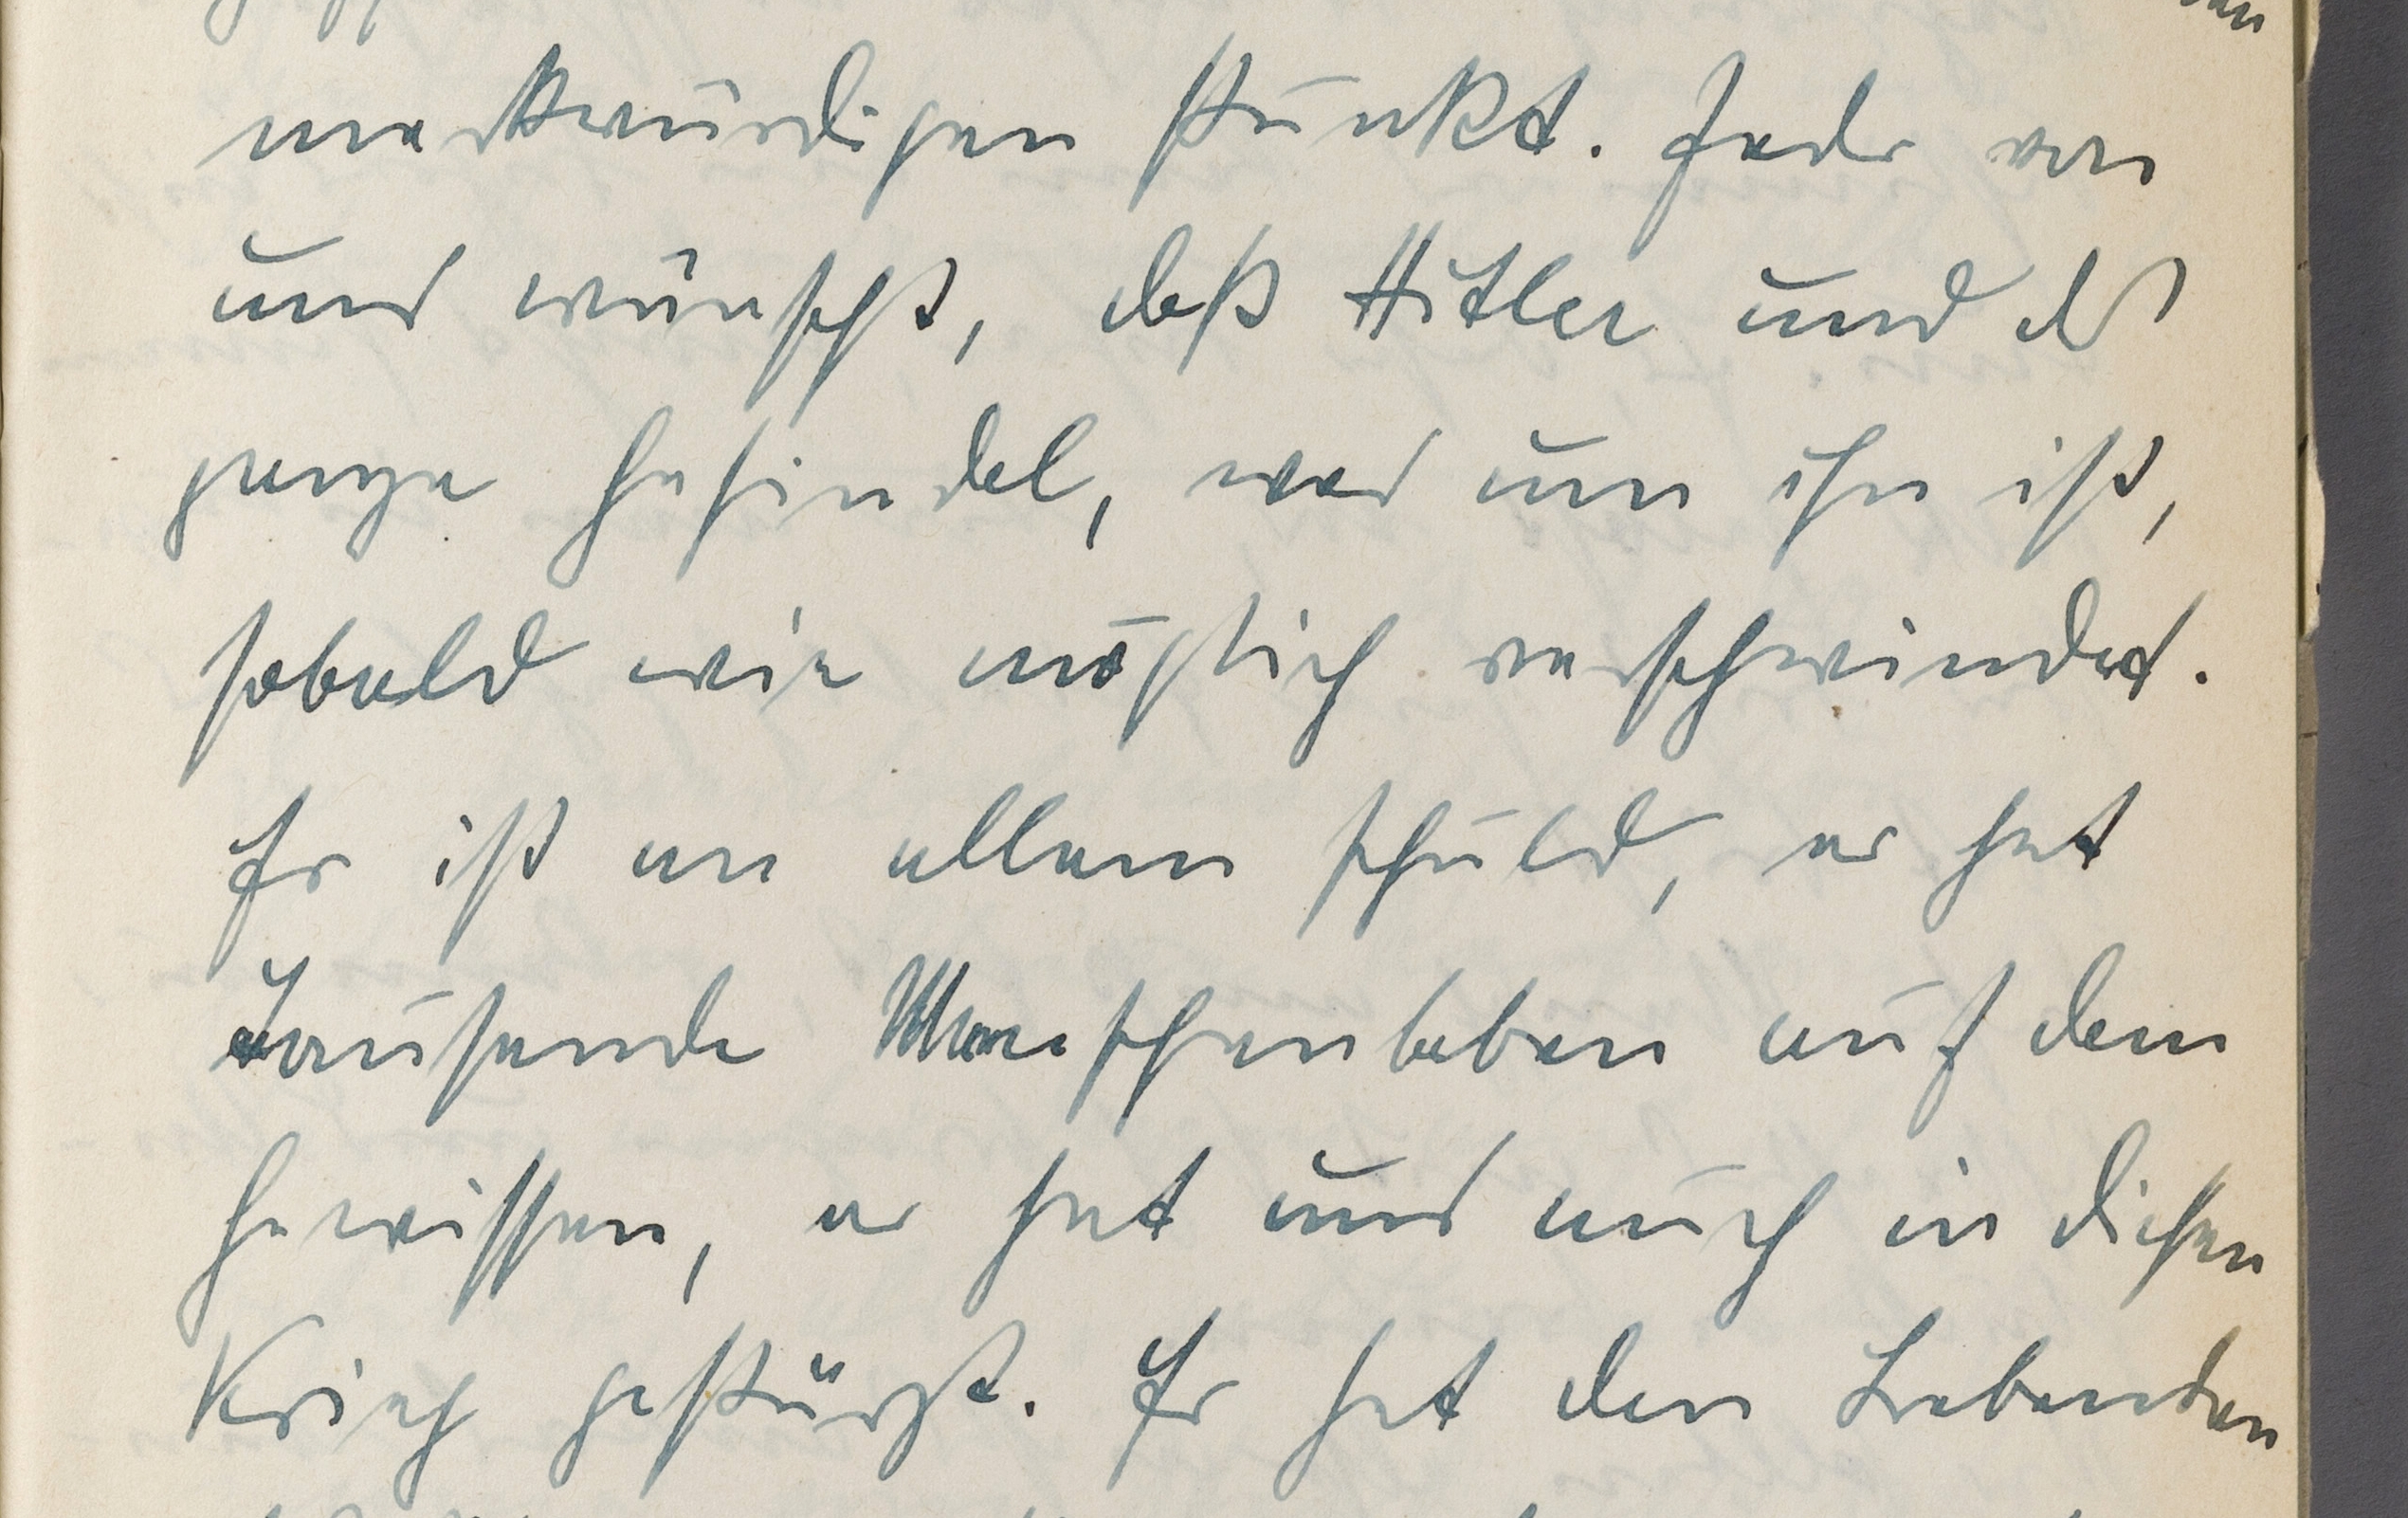 merkwürdigen Punkt. Jeder von
uns wünscht, daß Hitler und das
ganze Gesindel, was um ihn ist,
sobald wie möglich verschwindet.
Er ist an allem schuld, er hat
Tausende Menschenleben auf dem
Gewissen, er hat uns auch in diesen
Krieg gestürzt. Er hat den Lebenden